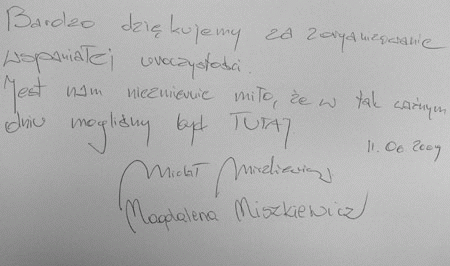 Bardzo dziękujemy za zorganizowanie
wspaniałej uroczystości.
Jest nam niezmiernie miło, że w tak ważnym
dniu mogliśmy być TUTAJ
11.06.2009
Michał Miszkiewicz
Magdalena Miszkiewicz